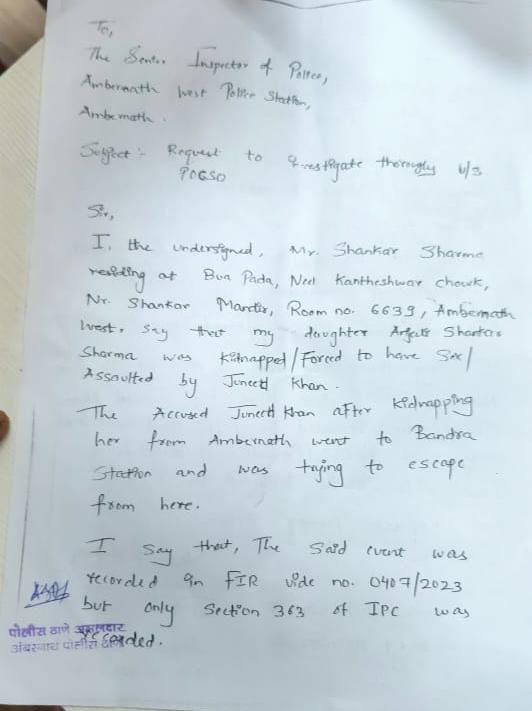 To,
The Senior Inspector of Police,
Ambernath West Police Station,
Ambernath.
Subject :- Request to Investigate thoroughly u/s
POCSO
Sir,
I, the undersigned, Mr. Shankar Sharma
residing at Bua Pada, Neel Kantheshwar chowk,
Nr. Shankar Mandir, Room no. 6639, Ambernath
West, say that my daughter Shankar
Sharma was Kidnapped/Forced to have Sex/
Assaulted by Juneed Khan.
The Accused Juneed Khan after kidnapping
her from Ambernath went to Bandra
Station and was trying to escape
from here.
I say that, The said event was
recorded in FIR vide no. 0407/2023
but only Section 363 of IPC was
recorded.
पोलीस ठाणे अंमलदार
अंबरनाथ पोलीस ठाणे